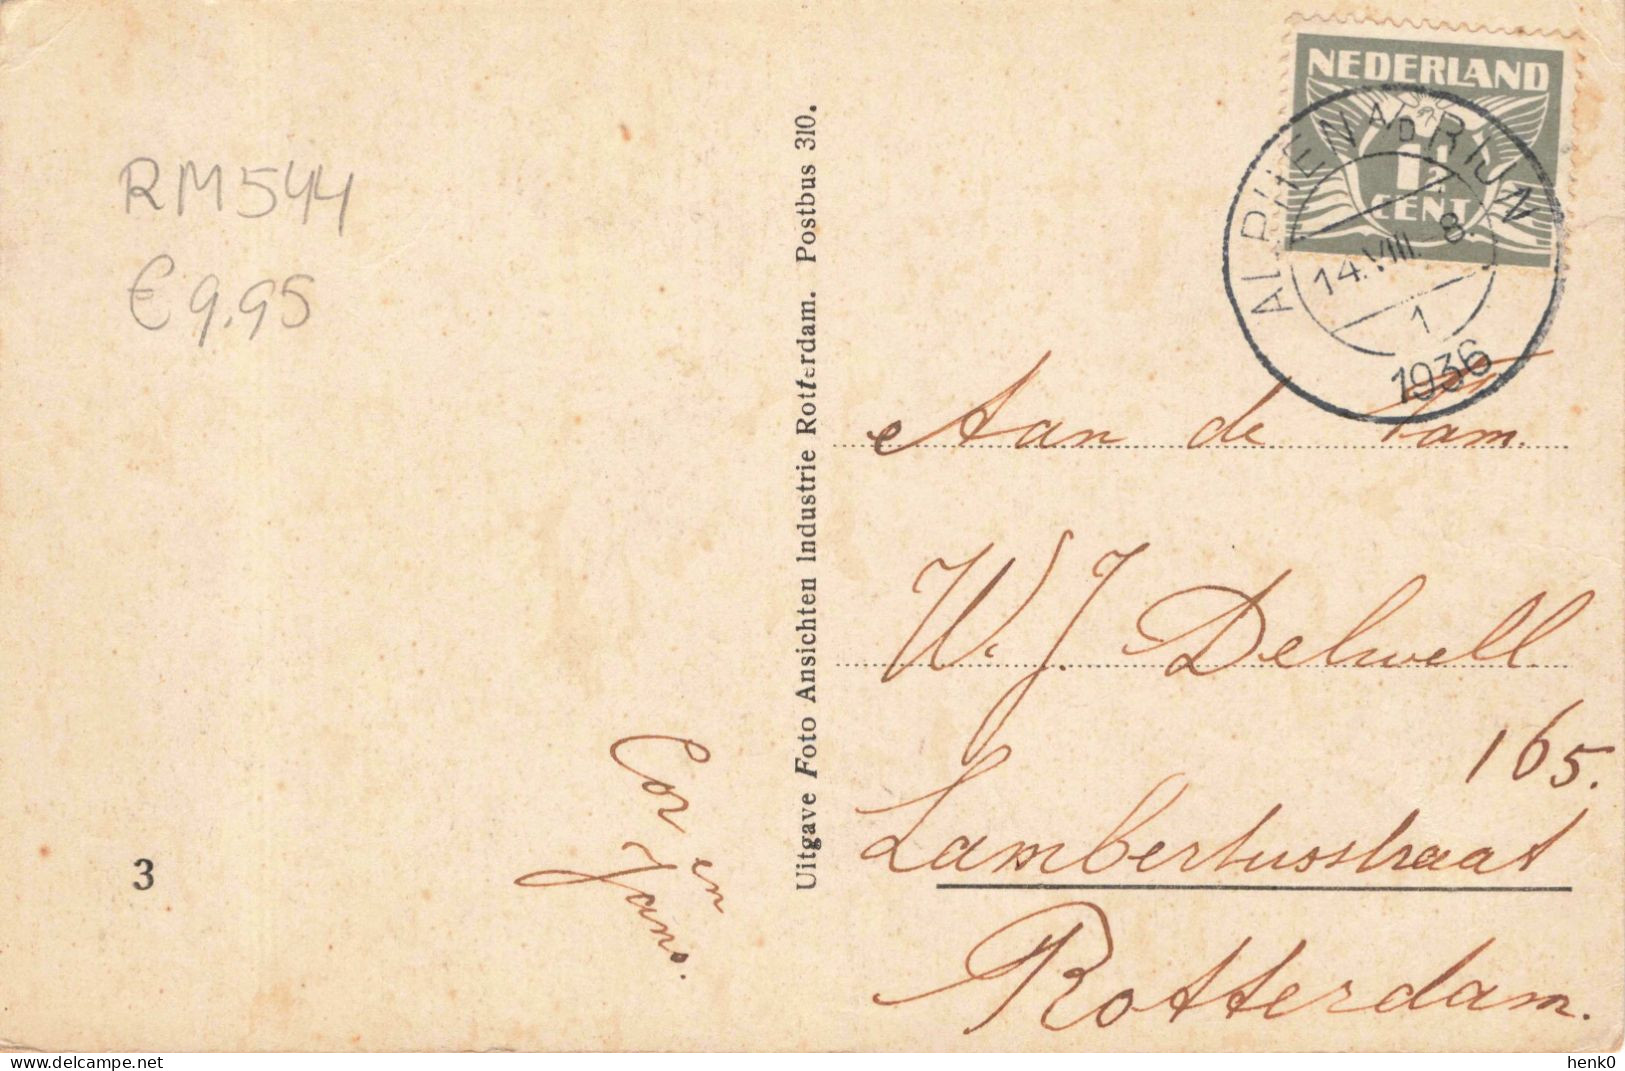 RM544
€ 9,95
3
Cor
en
Jans.
Uitgave Foto Ansichten Industrie Rotterdam. Postbus 310.
NEDERLAND
1½
CENT
ALPHEN A/D RIJN
14.VIII. 8.
1
1936
Aan de Fam.
W. J. Delwell
165.
Lambertusstraat
Rotterdam.
henk0